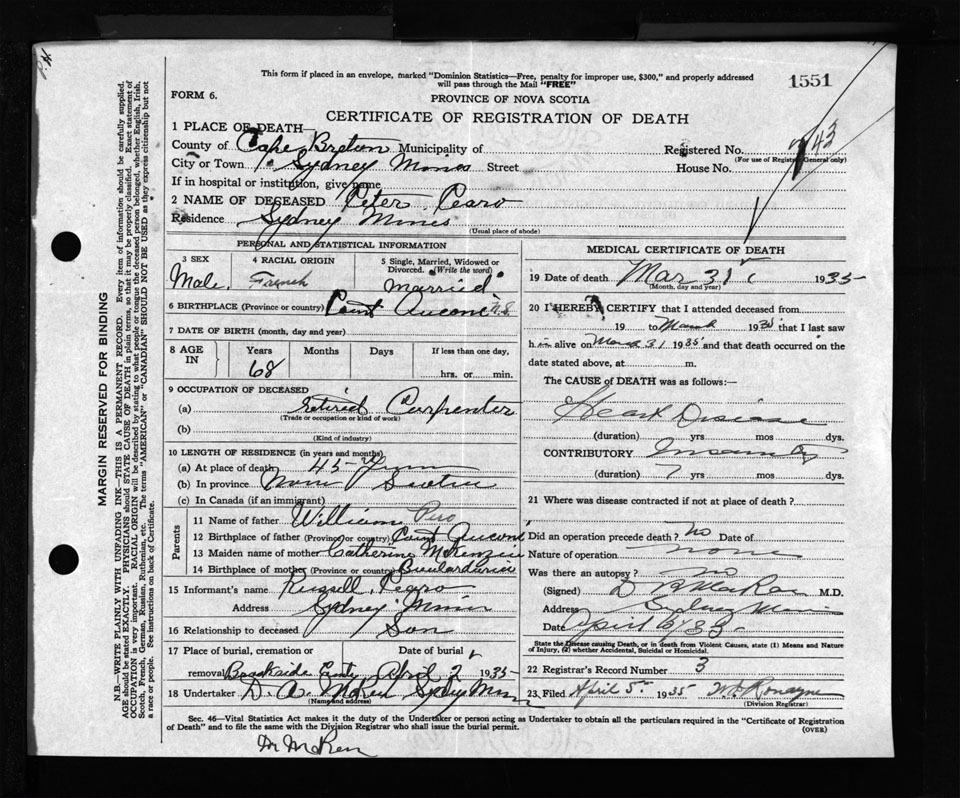 This form if placed in an envelope, marked "Dominion Statistics—Free, penalty for improper use, $300," and properly addressed
will pass through the Mail "FREE"
1551
FORM 6.
PROVINCE OF NOVA SCOTIA
CERTIFICATE OF REGISTRATION OF DEATH
1 PLACE OF DEATH—
County of Cape Breton Municipality of
Registered No. 43
(For use of Registrar General only)
City or Town Sydney Mines Street House No.
If in hospital or institution, give name
2 NAME OF DECEASED Peter Pearo
Residence Sydney Mines
(Usual place of abode)
PERSONAL AND STATISTICAL INFORMATION
3 SEX
Male.
4 RACIAL ORIGIN
French
5 Single, Married, Widowed or
Divorced. (Write the word)
married
6 BIRTHPLACE (Province or country) Point Aucone N.S
7 DATE OF BIRTH (month, day and year)
8 AGE IN
Years Months Days If less than one day,
68
hrs. or min.
9 OCCUPATION OF DECEASED
(a) retired Carpenter
(Trade or occupation or kind of work)
(b)
(Kind of industry)
10 LENGTH OF RESIDENCE (in years and months)
(a) At place of death 45
(b) In province Nova Scotia
(c) In Canada (if an immigrant)
Parents
11 Name of father William Pero
12 Birthplace of father (Province or country) Point Aucone
13 Maiden name of mother Catherine McKenzie
14 Birthplace of mother (Province or country) Boulardarie
15 Informant's name Russell Pearo
Address Sydney Mines
16 Relationship to deceased Son
17 Place of burial, cremation or Date of burial
removal Brookside April 2 1935
18 Undertaker D. A. Sydney Mines
(Name and address)
MEDICAL CERTIFICATE OF DEATH
19 Date of death Mar 31 1935
(Month, day and year)
20 I HEREBY CERTIFY that I attended deceased from
19 to March 19 that I last saw
h alive on March 31 1935 and that death occurred on the
date stated above, at m.
The CAUSE of DEATH was as follows:—
Heart Disease
(duration) yrs mos dys.
CONTRIBUTORY Insanity
(duration) 7 yrs mos dys.
21 Where was disease contracted if not at place of death?
Did an operation precede death? no Date of
Nature of operation none
Was there an autopsy? no
(Signed) M.D.
Address Sydney Mines
Date April
State the Disease causing Death, or in death from Violent Causes, state (1) Means and Nature
of Injury, (2) whether Accidental, Suicidal or Homicidal.
22 Registrar's Record Number 3
23 Filed April 5 1935 Ronayne
(Division Registrar)
Sec. 46—Vital Statistics Act makes it the duty of the Undertaker or person acting as Undertaker to obtain all the particulars required in the "Certificate of Registration
of Death" and to file the same with the Division Registrar who shall issue the burial permit. (OVER)
MARGIN RESERVED FOR BINDING
N.B.—WRITE PLAINLY WITH UNFADING INK—THIS IS A PERMANENT RECORD. Every item of information should be carefully supplied.
AGE should be stated EXACTLY. PHYSICIANS should STATE CAUSE OF DEATH in plain terms, so that it may be properly classified. Exact statement of
OCCUPATION is very important. RACIAL ORIGIN will be described by stating to what people or tongue the deceased person belonged, whether English, Irish,
Scotch, French, German, Russian, Ruthenian, etc. The terms "AMERICAN" or "CANADIAN" SHOULD NOT BE USED as they express citizenship but not
a race or people. See instructions on back of Certificate.